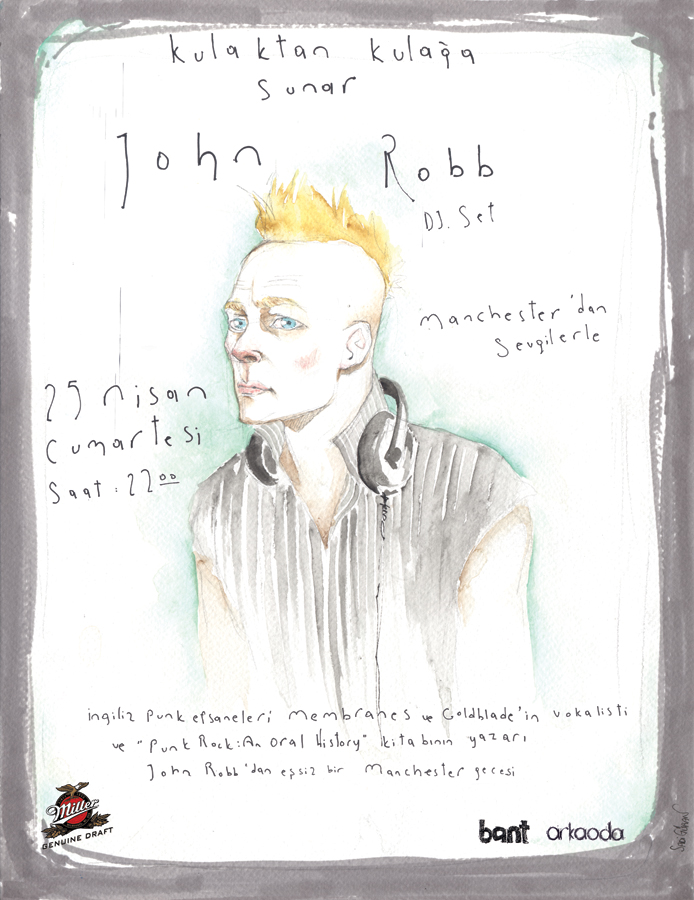 kulaktan kulağa
sunar
John Robb
DJ. Set
Manchester'dan
Sevgilerle
25 nisan
cumartesi
Saat : 22⁰⁰
ingiliz Punk efsaneleri Membranes ve Goldblade'in vokalisti
ve "Punk Rock: An Oral History" kitabının yazarı
John Robb'dan eşsiz bir Manchester gecesi
Miller
GENUINE DRAFT
bant arkaoda